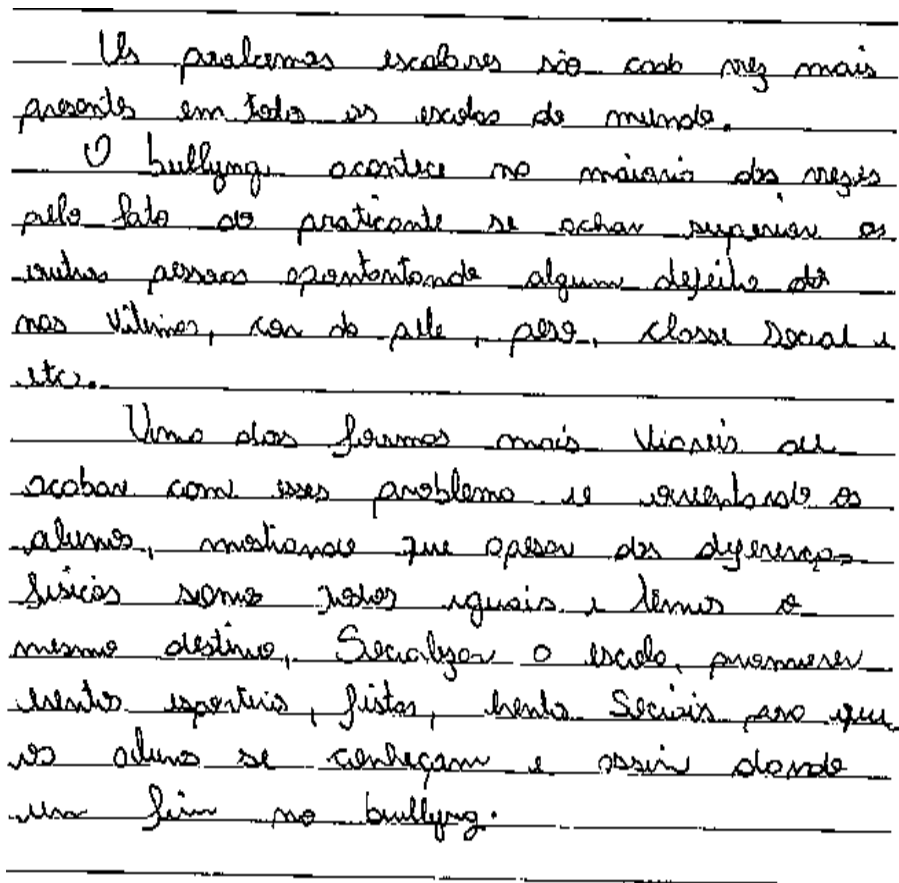 Os problemas escolares são cada vez mais
presentes em todas as escolas do mundo.
O bullyng acontece na maioria das vezes
pelo fato do praticante se achar superior as
outras pessoas apontantando algum defeito
nas vitimas, cor da pele, peso, classe social e
etc.
Uma das formas mais viaveis de
acabar com esses problema e orientando os
alunos, mostrando que apesar das diferenças
fisicas somos todos iguais e temos o
mesmo destino. Socializar a escola, promover
eventos esportivos, festas, eventos Sociais para que
os alunos se conheçam e assim dando
um fim no bullyng.